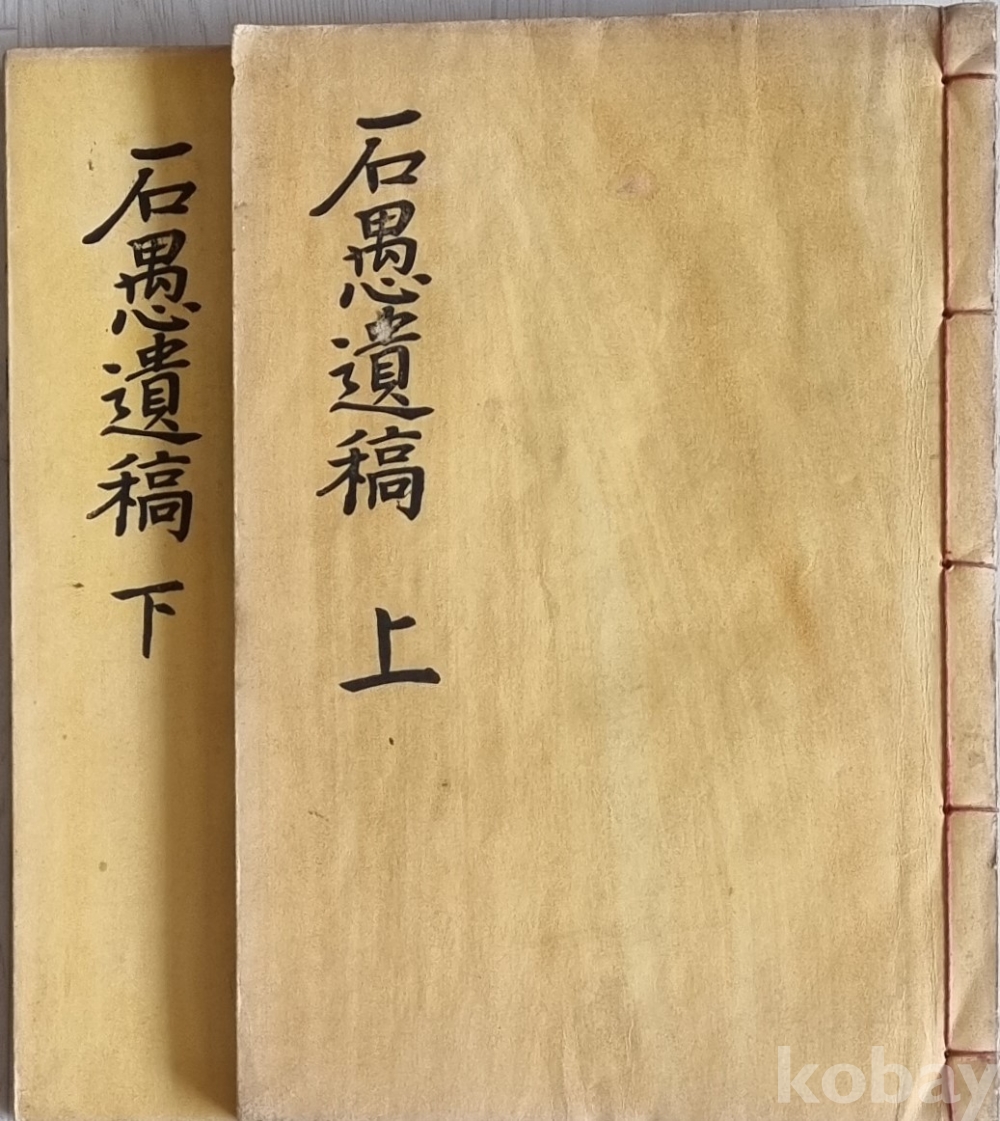 石愚遺稿 上
石愚遺稿 下
kobay